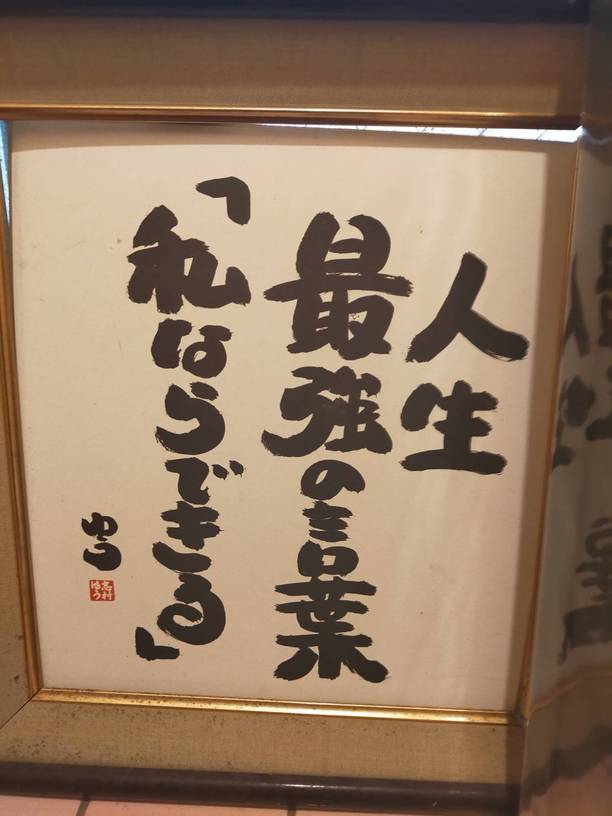 人生
最強の言葉
「私ならできる」
ゆう
高村
ゆう